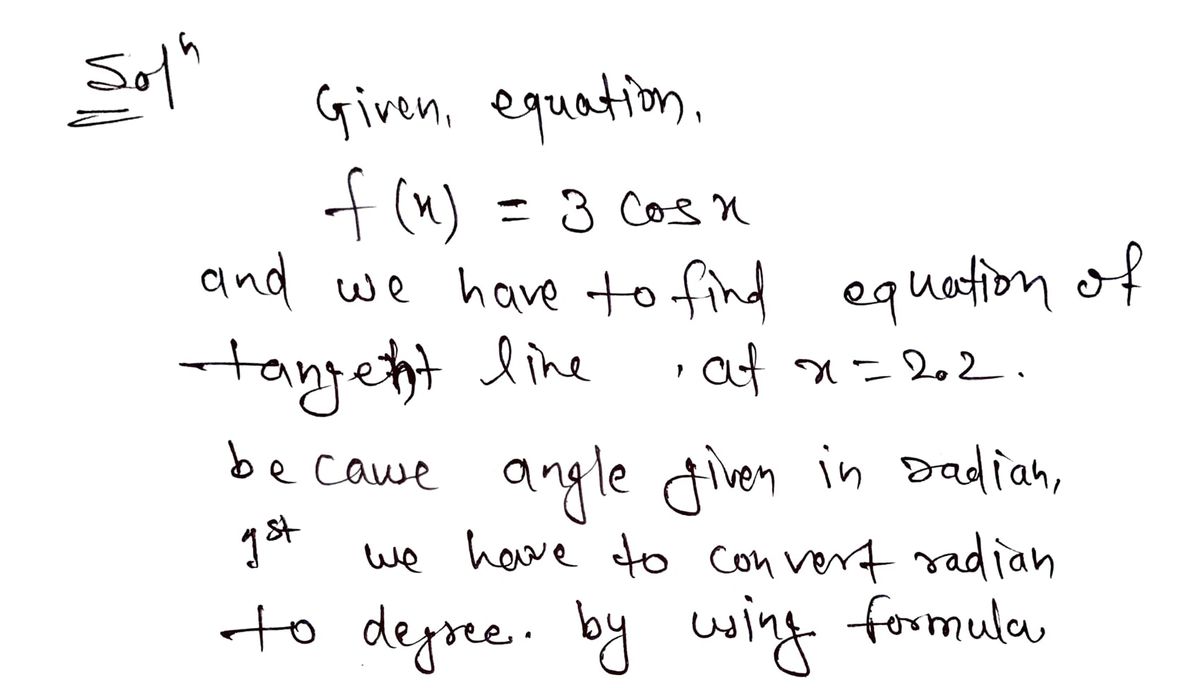 Solⁿ
Given, equation,
f(x) = 3 cos x
and we have to find equation of
tangent line , at x = 2.2.
because angle given in radian,
1st we have to convert radian
to degree. by using formula